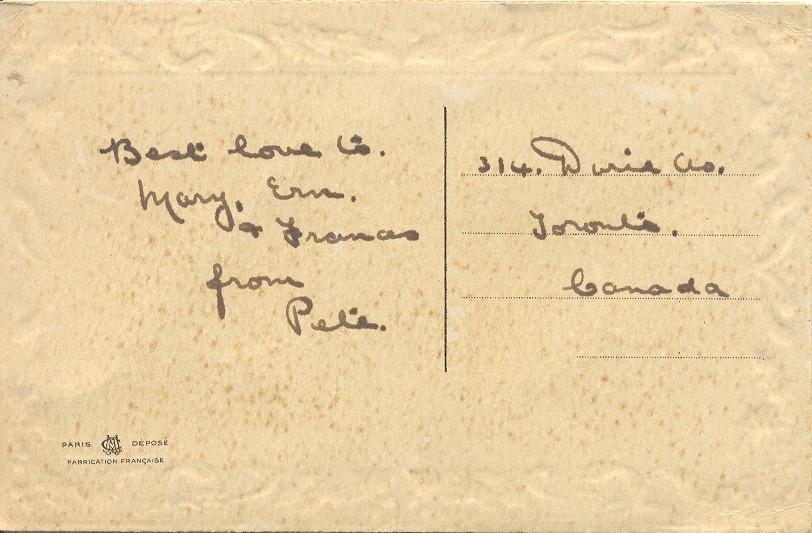 Best love to.
Mary, Ern.
& Frances
from
Pete.
314. Durie Av.
Toronto.
Canada
PARIS DÉPOSÉ
FABRICATION FRANÇAISE